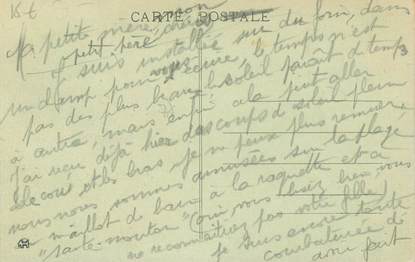 15 f
CARTE POSTALE
Ma petite mère, mon
petit père
Je suis installée sur du foin, dans
un champ pour vous écrire, le temps n'est
pas des plus beaux. Soleil paraît d' temps
à autre, mais enfin cela peut aller
J'ai reçu déjà hier des coups de soleil plein
le cou et les bras je ne peux plus remuer,
nous nous sommes amusées sur la plage
maillot de bain à la raquette et à
"saute-mouton" (oui vous lisez bien, vous
ne reconnaîtrez pas votre fille)
je suis encore toute
courbaturée de